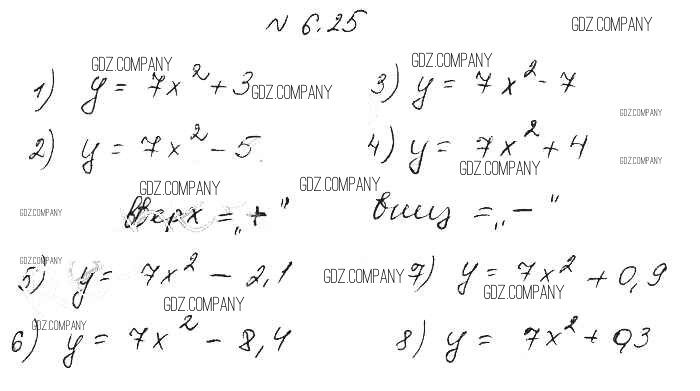 N 6.25 GDZ.COMPANY
GDZ.COMPANY GDZ.COMPANY
1) y = 7x² + 3 GDZ.COMPANY 3) y = 7x² - 7
GDZ.COMPANY
2) y = 7x² - 5 4) y = 7x² + 4
GDZ.COMPANY GDZ.COMPANY
GDZ.COMPANY GDZ.COMPANY
GDZ.COMPANY вверх = „+" вниз = „-"
GDZ.COMPANY
5) y = 7x² - 2,1 GDZ.COMPANY 7) y = 7x² + 0,9
GDZ.COMPANY GDZ.COMPANY
GDZ.COMPANY
6) y = 7x² - 8,4 8) y = 7x² + 0,3